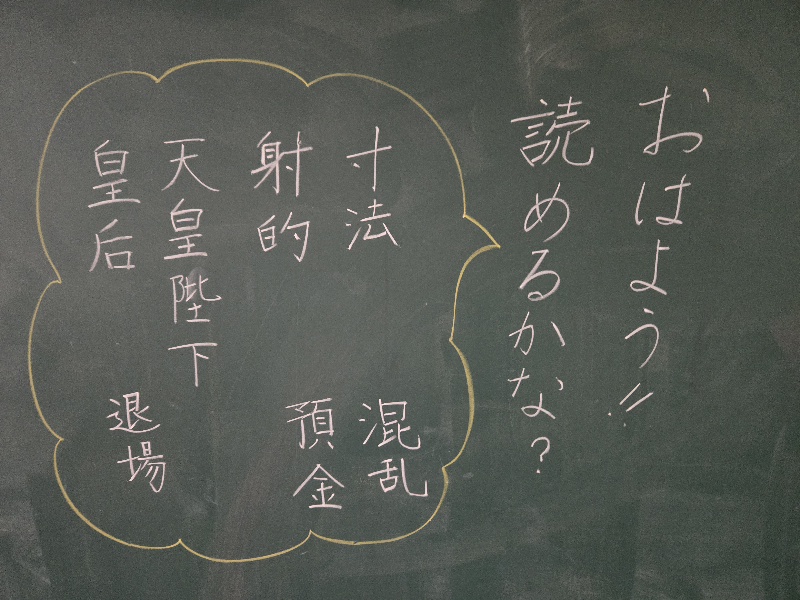 おはよう!!
読めるかな?
寸法
射的
天皇陛下
皇后
混乱
預金
退場